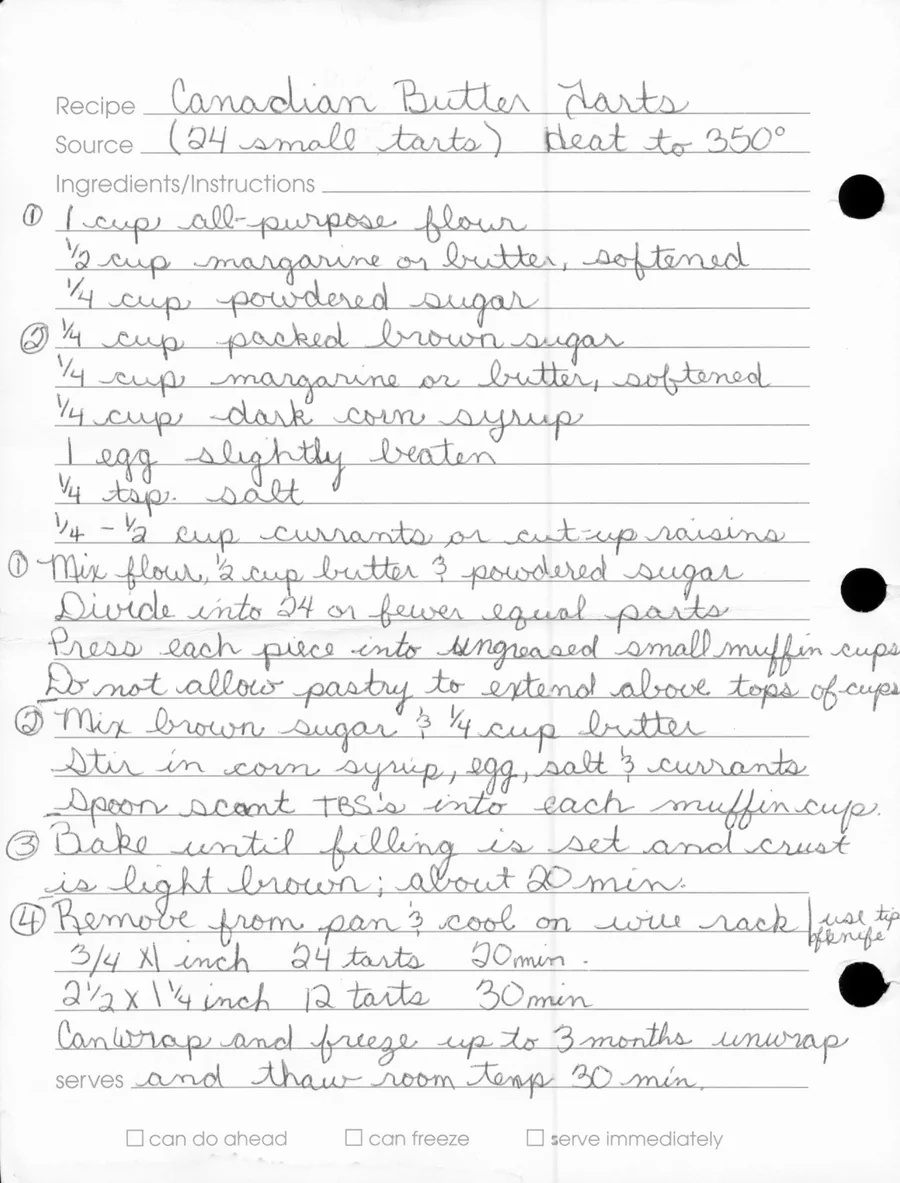 Recipe Canadian Butter Tarts
Source (24 small tarts) Heat to 350°
Ingredients/Instructions
① 1 cup all-purpose flour
1/2 cup margarine or butter, softened
1/4 cup powdered sugar
② 1/4 cup packed brown sugar
1/4 cup margarine or butter, softened
1/4 cup dark corn syrup
1 egg slightly beaten
1/4 tsp. salt
1/4 - 1/2 cup currants or cut-up raisins
① Mix flour, 1/2 cup butter & powdered sugar
Divide into 24 or fewer equal parts
Press each piece into ungreased small muffin cups
Do not allow pastry to extend above tops of cups
② Mix brown sugar & 1/4 cup butter
Stir in corn syrup, egg, salt & currants
Spoon scant TBS's into each muffin cup.
③ Bake until filling is set and crust
is light brown; about 20 min.
④ Remove from pan & cool on wire rack | use tip
of knife
3/4 X 1 inch 24 tarts 20 min.
2 1/2 X 1 1/4 inch 12 tarts 30 min
Can wrap and freeze up to 3 months unwrap
serves and thaw room temp 30 min.
can do ahead can freeze serve immediately